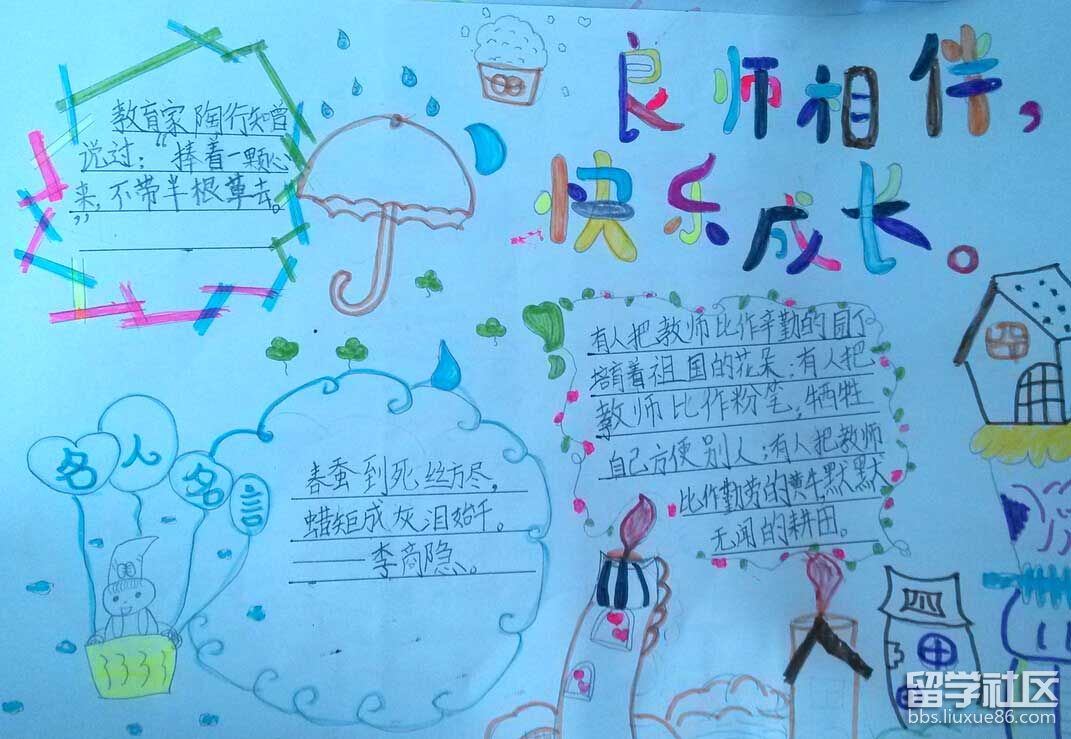 良师相伴,
快乐成长。
教育家陶行知曾
说过:“捧着一颗心
来,不带半根草去。
”
名人名言
春蚕到死丝方尽,
蜡矩成灰泪始干。
——李商隐。
有人把教师比作辛勤的园丁
培育着祖国的花朵;有人把
教师比作粉笔,牺牲
自己方便别人;有人把教师
比作勤劳的黄牛默默
无闻的耕田。
留学社区
bbs.liuxue86.com